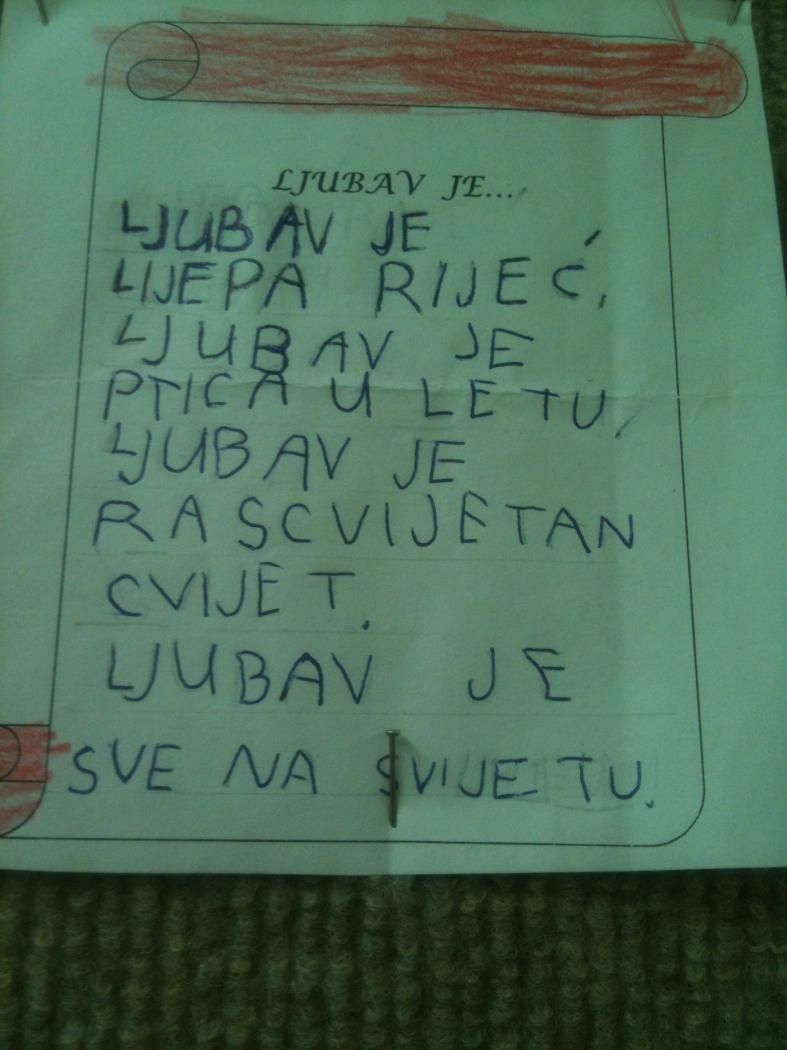 LJUBAV JE...
LJUBAV JE
LIJEPA RIJEĆ,
LJUBAV JE
PTICA U LETU,
LJUBAV JE
RASCVIJETAN
CVIJET.
LJUBAV JE
SVE NA SVIJETU.